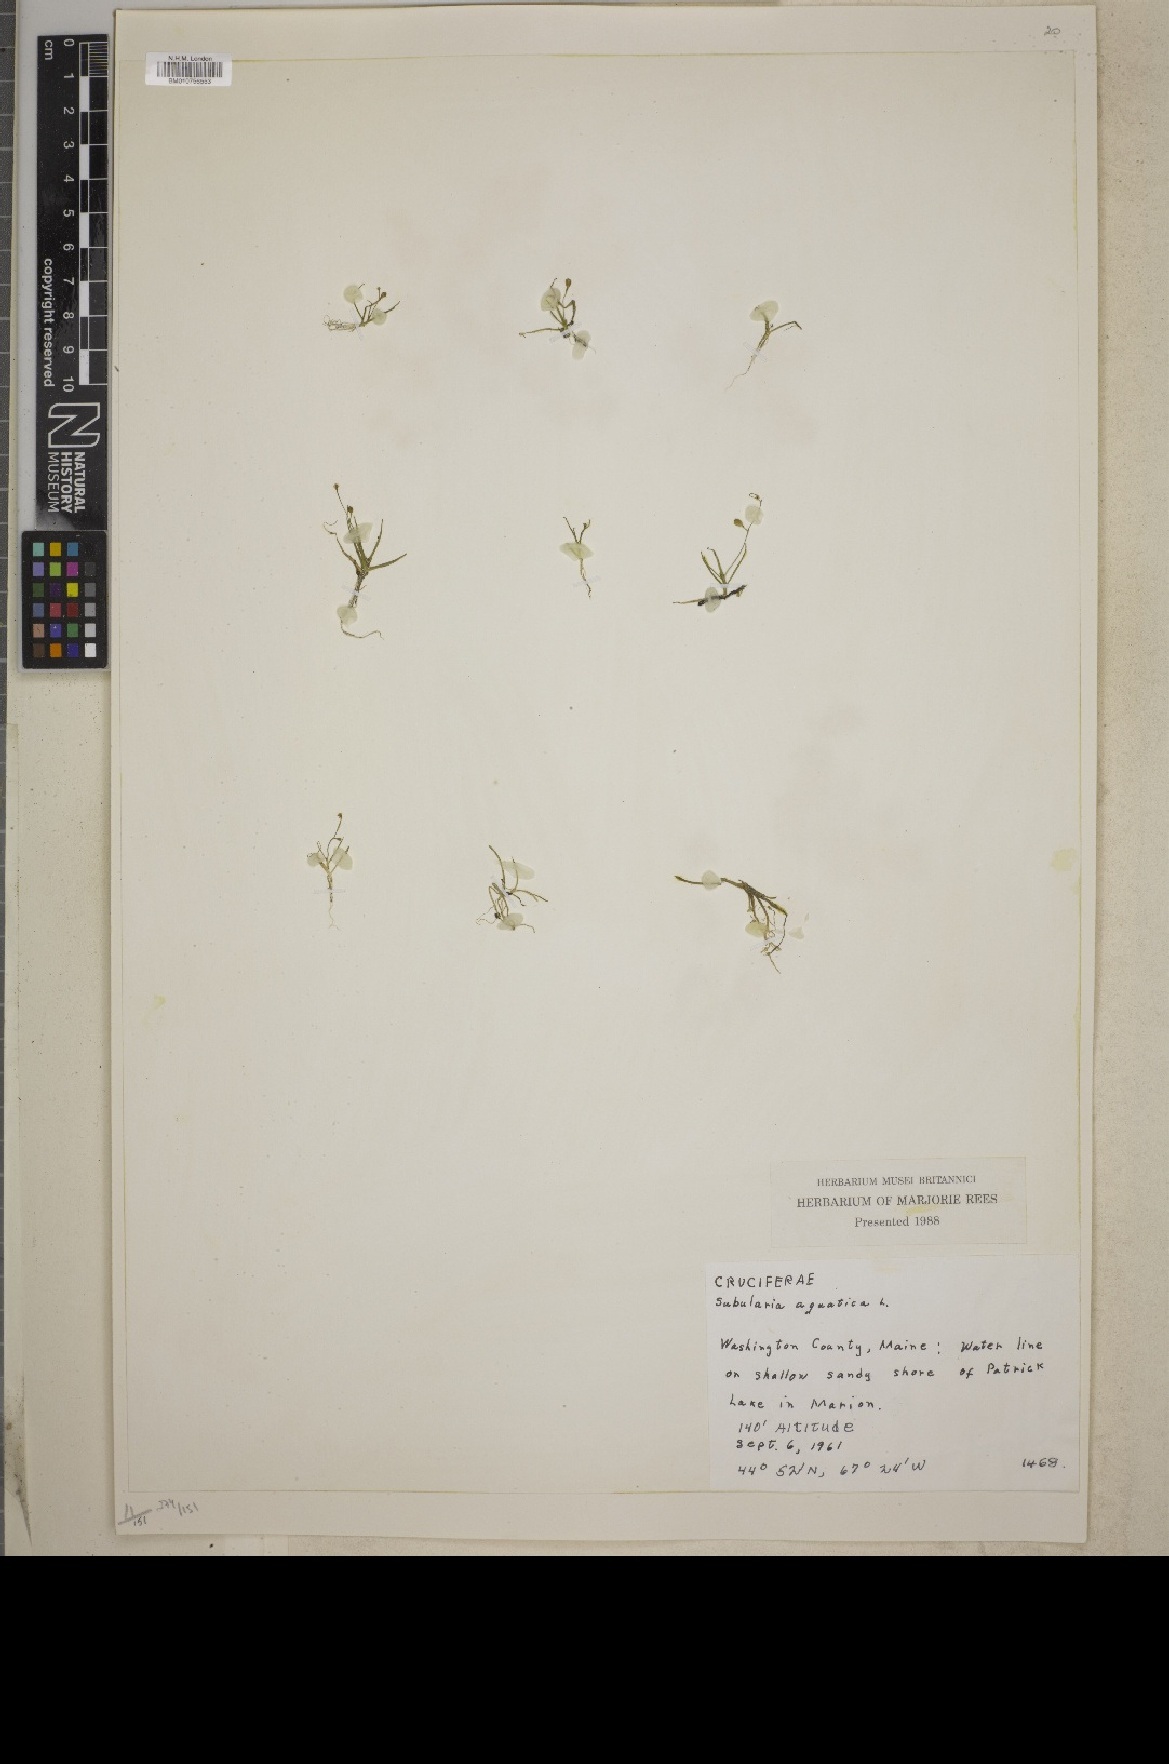 20
N.H.M. London
cm
0
1
2
3
4
5
6
7
8
9
10
copyright reserved
NATURAL
HISTORY
MUSEUM
HERBARIUM MUSEI BRITANNICI
HERBARIUM OF MARJORIE REES
Presented 1988
CRUCIFERAE
Subularia aquatica L.
Washington County, Maine: Water line
on shallow sandy shore of Patrick
Lake in Marion.
140' Altitude
Sept. 6, 1961
44° 52'N, 67° 24'W
1468.